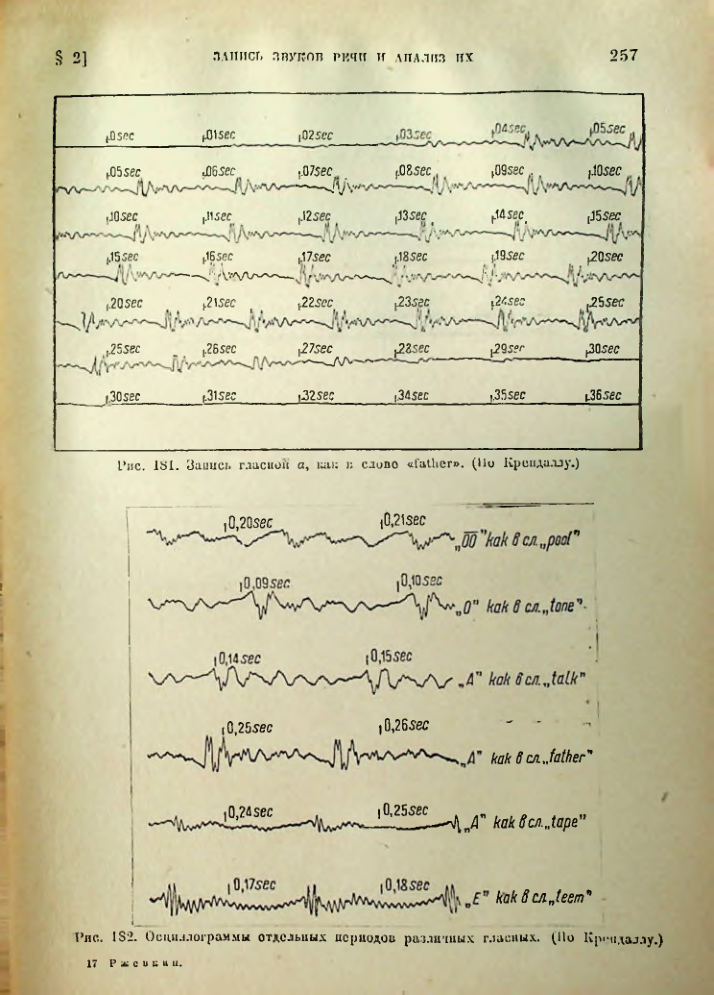 § 2] ЗАПИСЬ ЗВУКОВ РЕЧИ И АНАЛИЗ ИХ 257
,0sec ,01sec ,02sec ,03sec ,04sec ,05sec
,05sec ,06sec ,07sec ,08sec ,09sec ,10sec
,10sec ,11sec ,12sec ,13sec ,14sec ,15sec
,15sec ,16sec ,17sec ,18sec ,19sec ,20sec
,20sec ,21sec ,22sec ,23sec ,24sec ,25sec
,25sec ,26sec ,27sec ,28sec ,29sec ,30sec
,30sec ,31sec ,32sec ,34sec ,35sec ,36sec
Рис. 181. Запись гласной а, как в слове «father». (По Крендаллу.)
0,20sec 0,21sec
„OO" как в сл. „pool"
0,09sec 0,10sec
„O" как в сл. „tone"
0,14sec 0,15sec
„A" как в сл. „talk"
0,25sec 0,26sec
„A" как в сл. „father"
0,24sec 0,25sec
„A" как в сл. „tape"
0,17sec 0,18sec
„E" как в сл. „teem"
Рис. 182. Осциллограммы отдельных периодов различных гласных. (По Крендаллу.)
17 Ржевкин.